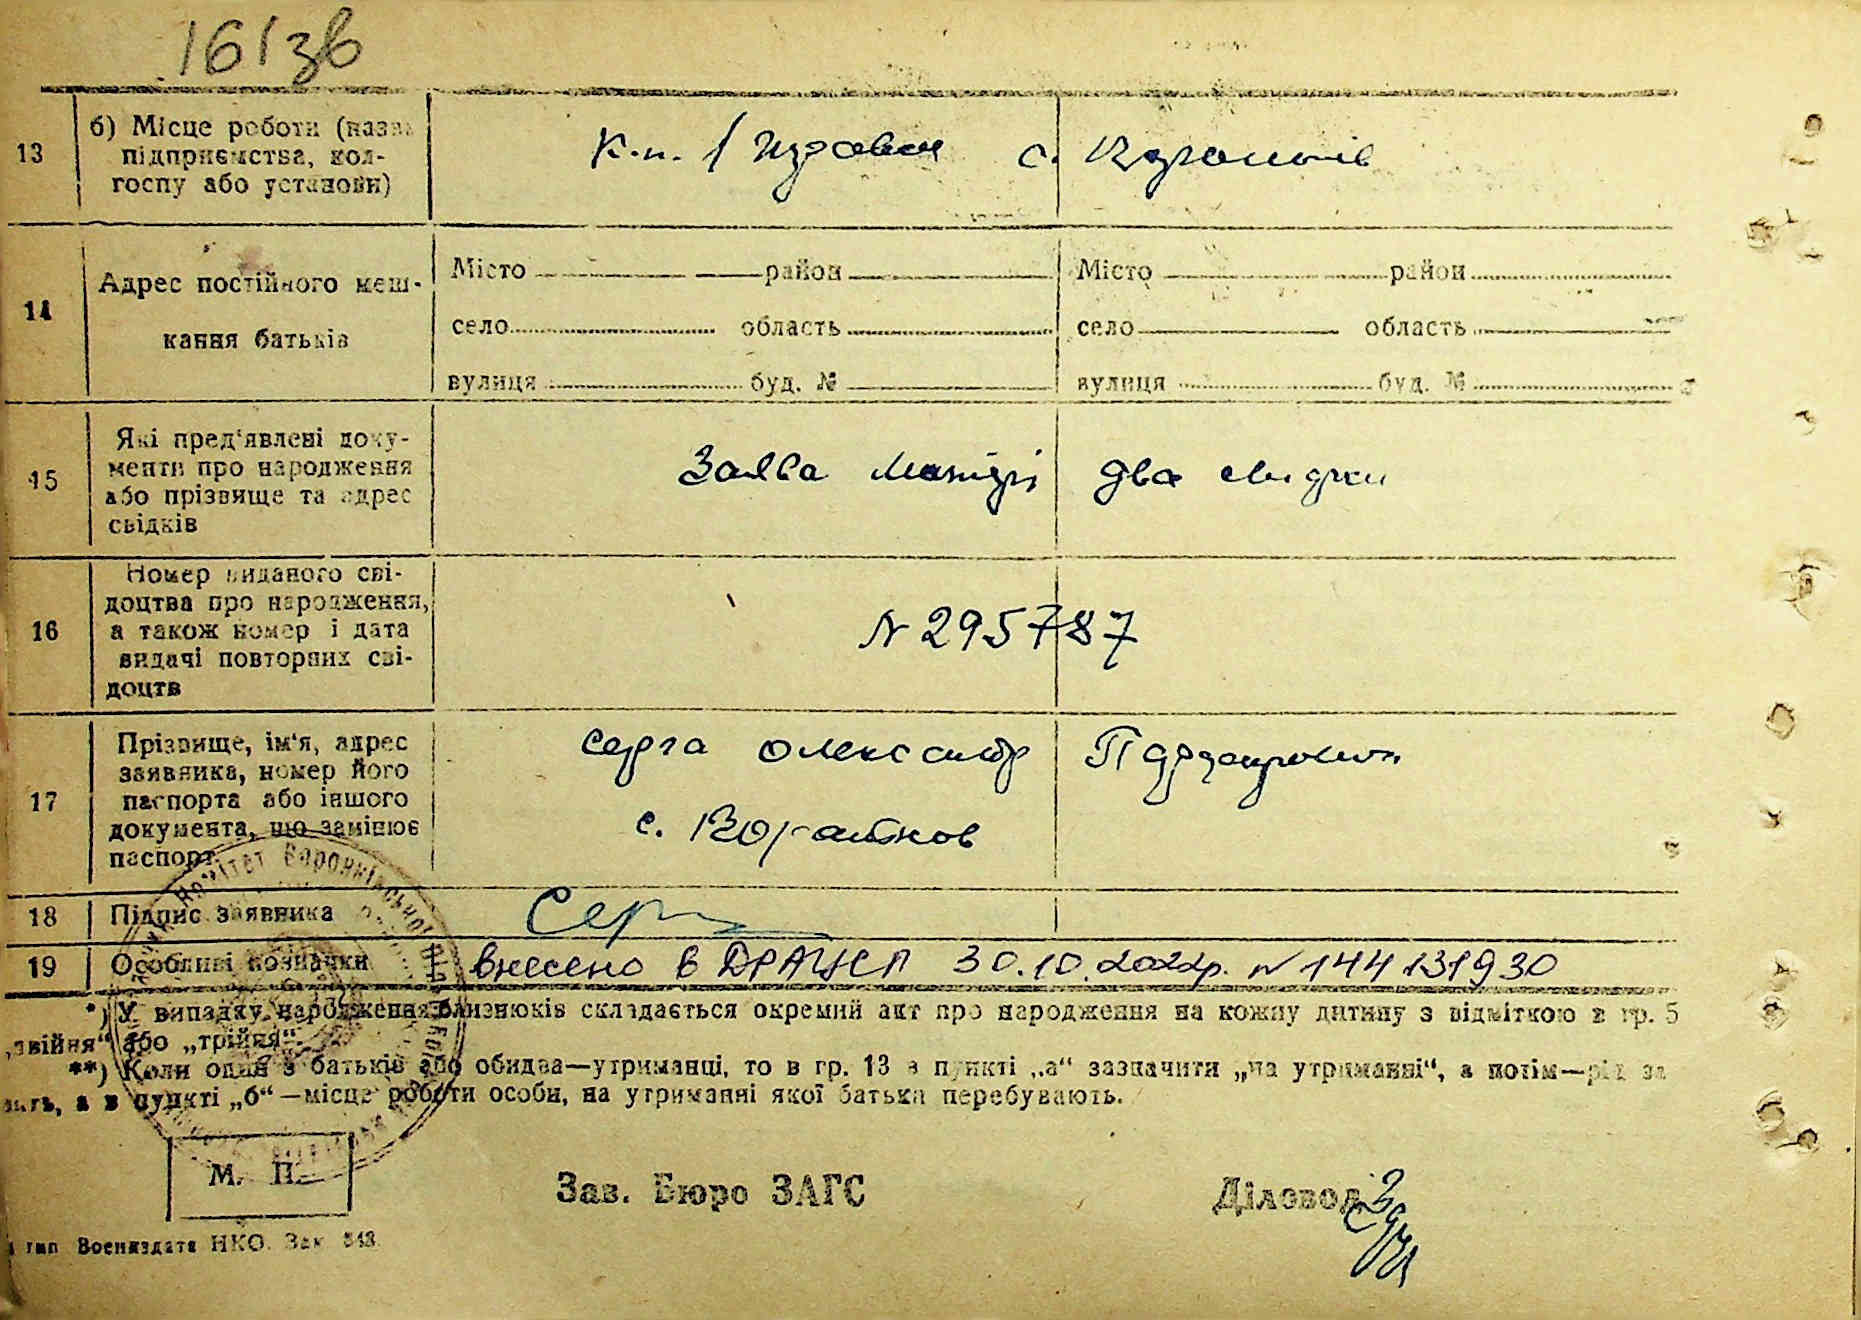 161зв
13
б) Місце роботи (назва
підприємства, кол-
госпу або установи)
с.
14
Адрес постійного меш-
кання батьків
Місто район
село область
вулиця буд. №
Місто район
село область
вулиця буд. №
15
Які пред'явлені доку-
менти про народження
або прізвище та адрес
свідків
Заява два свидки
16
Номер виданого сві-
доцтва про народження,
а також номер і дата
видачі повторних сві-
доцтв
N 295787
17
Прізвище, ім'я, адрес
заявника, номер його
паспорта або іншого
документа, що замінює
паспорт
Олександр
с.
18
Підпис заявника
Сер
19
Особливі позначки
внесено в ДРАЦСГ 30.10.2022р. N 144131930
*) У випадку народження близнюків складається окремий акт про народження на кожну дитину з відміткою в гр. 5
„двійня“ або „трійня“.
**) Коли один з батьків або обидва—утриманці, то в гр. 13 в пункті „а“ зазначити „на утриманні“, а потім—рід за
нять, а в пункті „б“—місце роботи особи, на утриманні якої батька перебувають.
М. П.
Зав. Бюро ЗАГС
Діловод
тип Воениздата НКО. Зак 543